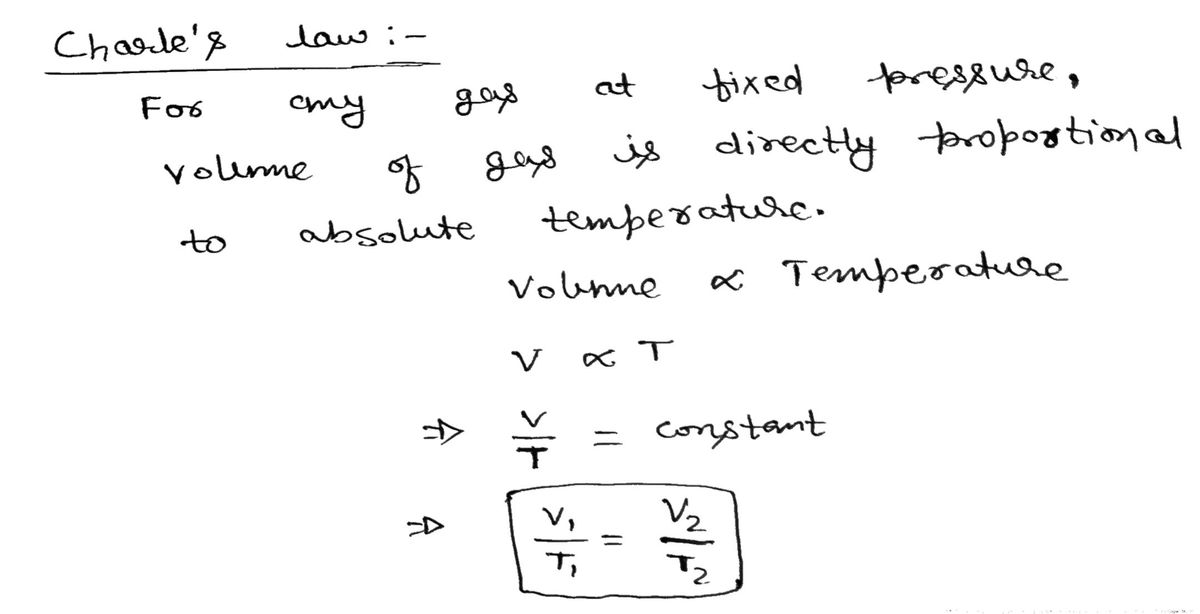 Charle's law :-
For any gas at fixed pressure,
volume of gas is directly proportional
to absolute temperature.
Volume ∝ Temperature
V ∝ T
⇒ V/T = constant
⇒ V₁/T₁ = V₂/T₂